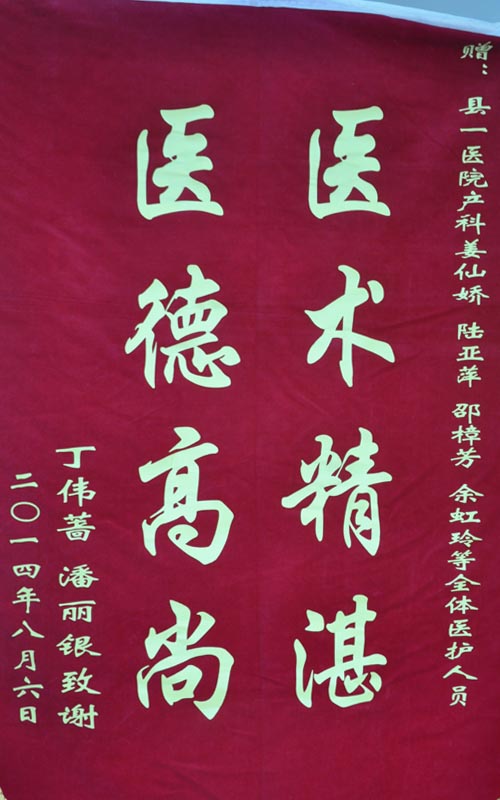 赠：县一医院产科姜仙娇 陆亚萍 邵樟芳 余虹玲等全体医护人员
医术精湛
医德高尚
丁伟蔷 潘丽银致谢
二〇一四年八月六日